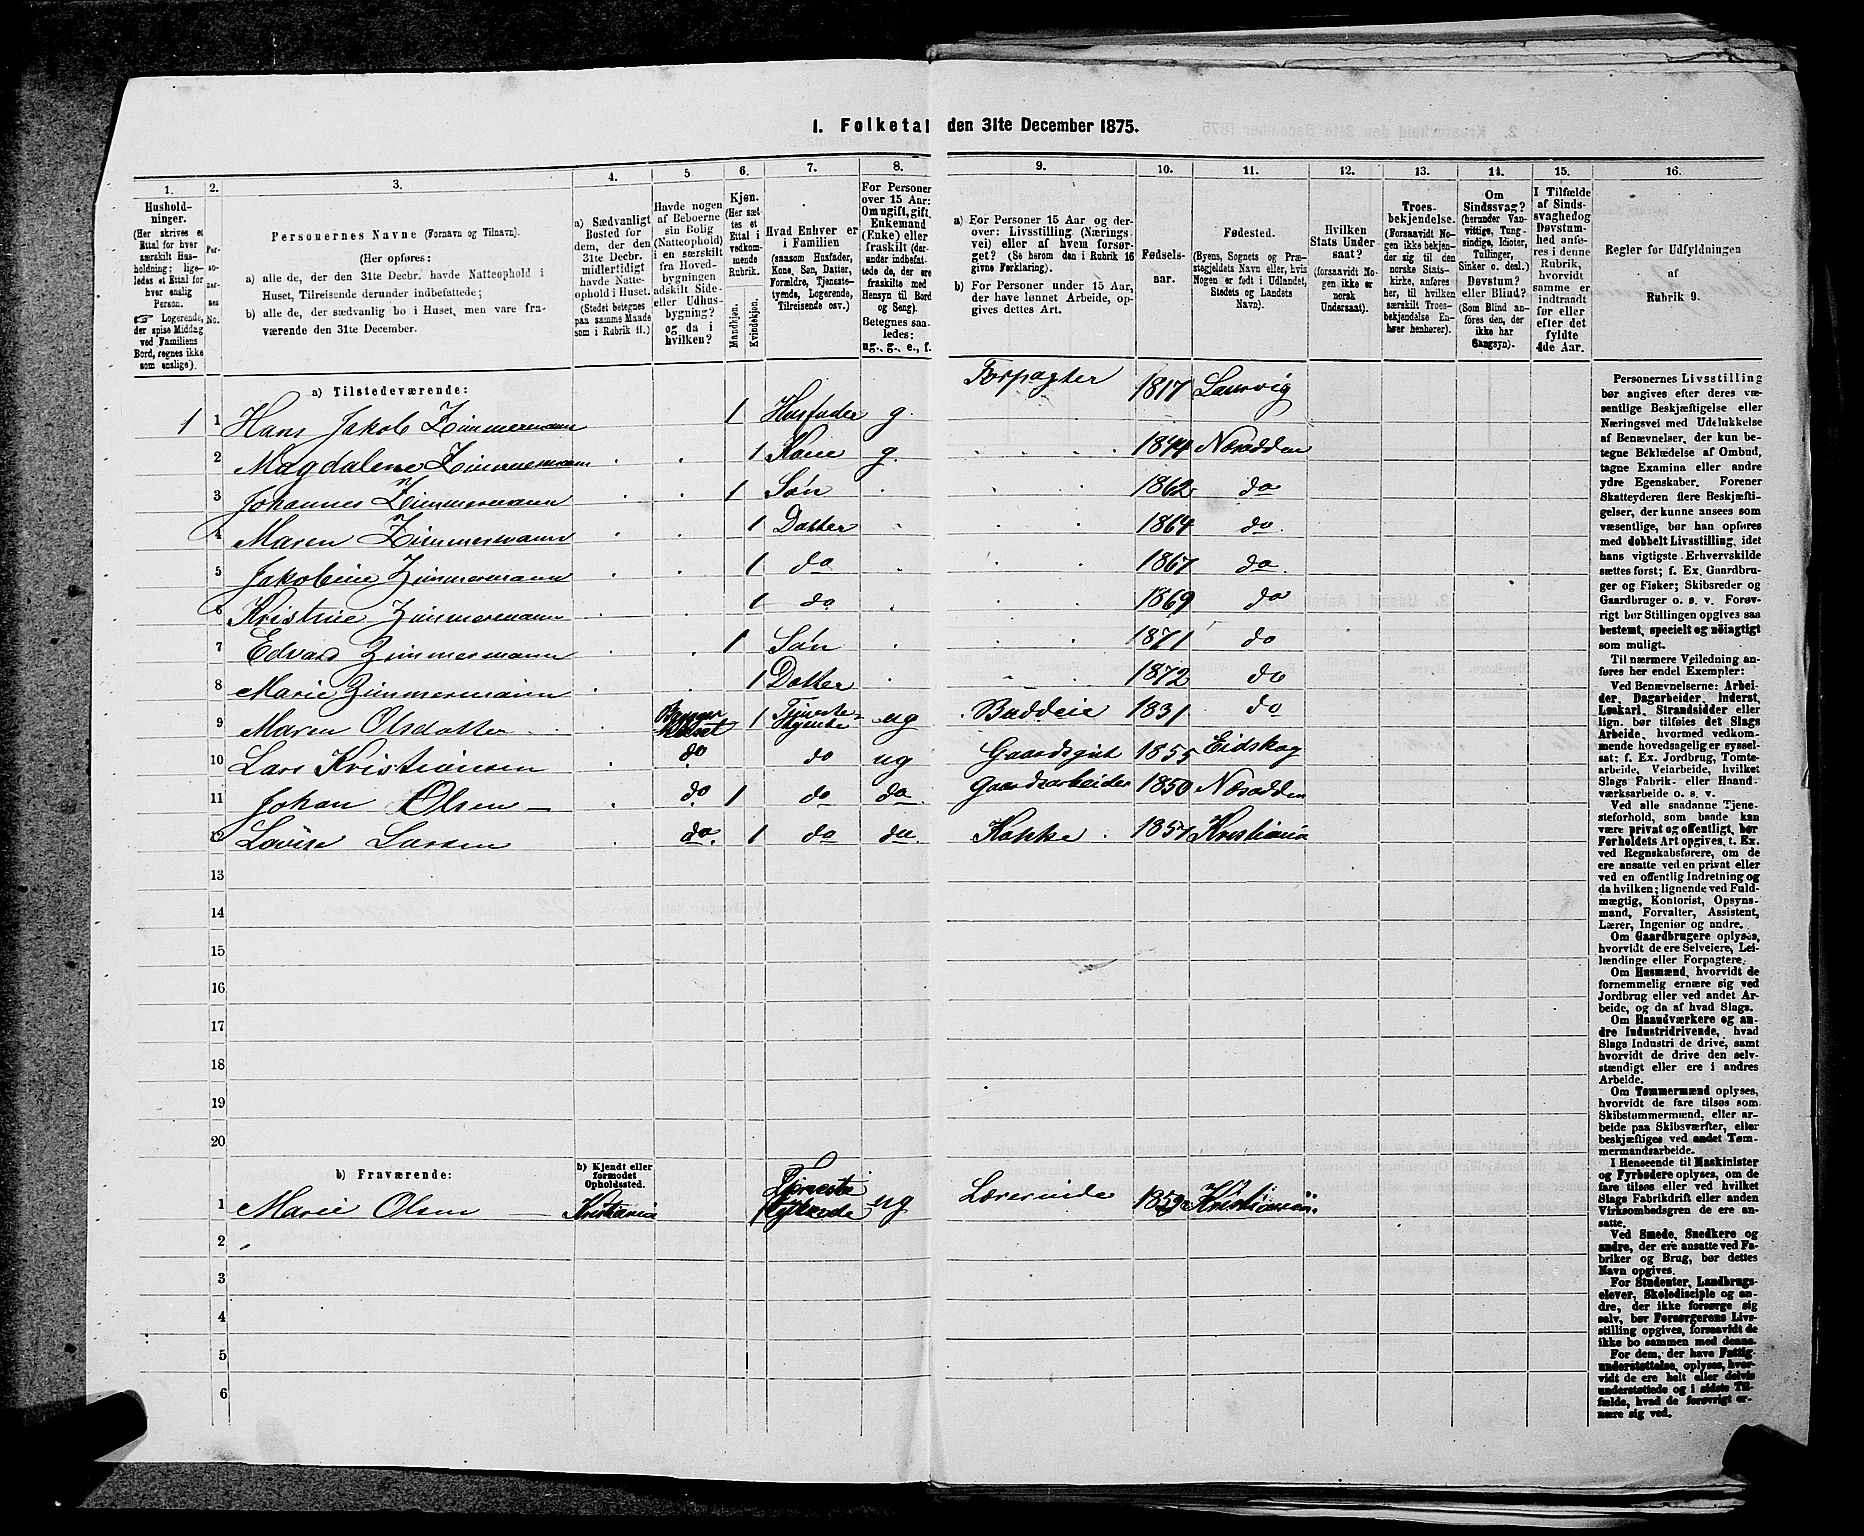 1. Folketal den 31te December 1875.
1.
Hushold-
ninger.
(Her skrives et
Ettal for hver
særskilt Hus-
holdning; lige-
ledes et Ettal
for hver
enslig
Person.
Logerende,
der spise Middag
ved Familiens
Bord, regnes ikke
som enslige).
2.
Per-
so-
ner-
nes
No.
3.
Personernes Navne (Fornavn og Tilnavn).
(Her opføres:
a) alle de, der den 31te Decbr. havde Natteophold i
Huset, Tilreisende derunder indbefattede;
b) alle de, der sædvanlig bo i Huset, men vare fra-
værende den 31te December.
4.
a) Sædvanligt
Bosted for
dem, der den
31te Decbr.
midlertidigt
havde Natte-
ophold i Huset.
(Stedet betegnes
paa samme Maade
som i Rubrik 11.)
5
Havde nogen
af Beboerne
sin Bolig
(Natteophold)
i en særskilt
fra Hoved-
bygningen
adskilt Side-
eller Udhus-
bygning?
og da i
hvilken?
6.
Kjøn.
(Her sæt-
tes et
Ettal i
vedkom-
mende
Rubrik.
Mandkjøn.
Kvindekjøn.
7.
Hvad Enhver er
i Familien
(saasom Husfader,
Kone, Søn, Datter,
Forældre, Tjeneste-
tyende, Logerende,
Tilreisende osv.)
8.
For Personer
over 15 Aar:
Om ugift, gift,
Enkemand
(Enke) eller
fraskilt (der-
under indbefat-
tede de, der ere
fraskilte med
Hensyn til Bord
og Seng).
Betegnes saa-
ledes:
ug., g., e., f.
9.
a) For Personer 15 Aar og der-
over: Livsstilling (Nærings-
vei) eller af hvem forsør-
get? (Se herom den i Rubrik 16
givne Forklaring).
b) For Personer under 15 Aar,
der have lønnet Arbeide, op-
gives dettes Art.
10.
Fødsels-
aar.
11.
Fødested.
(Byens, Sognets og Præ-
stegjeldets Navn eller, hvis
Nogen er født i Udlandet,
Stedets og Landets
Navn).
12.
Hvilken
Stats Under-
saat?
(forsaavidt No-
gen ikke er
norsk
Undersaat).
13.
Troes-
bekjendelse.
(Forsaavidt No-
gen ikke bekjen-
der sig til den
norske Stats-
kirke, anføres
her, til hvilken
særskilt Troes-
bekjendelse En-
hver henhører).
14.
Om
Sindssvag?
(herunder Van-
vittige, Tung-
sindige, Idioter,
Tullinger,
Sinker o. desl.)
Døvstum?
eller Blind?
(Som Blind an-
føres den, der
ikke har
Gangsyn).
15.
I Tilfælde
af Sinds-
svaghed og
Døvstum-
hed anfø-
res i denne
Rubrik,
hvorvidt
samme er
indtraadt
før eller
efter det
fyldte
4de Aar.
16.
Regler for Udfyldningen
af
Rubrik 9.
a) Tilstedeværende:
1 1 Hans Jakob Zimmermann 1 Husfader g. Forpagter 1817 Laurvig
2 Magdalene Zimmermann 1 Kone g. 1844 Næsodden
3 Johannes Zimmermann 1 Søn 1862 do
4 Maren Zimmermann 1 Datter 1864 do
5 Jakobine Zimmermann 1 do 1867 do
6 Kristine Zimmermann 1 do 1869 do
7 Edvard Zimmermann 1 Søn 1871 do
8 Marie Zimmermann 1 Datter 1872 do
9 Maren Olsdatter 1 Tjeneste-Tyende ug Buddeie 1831 do
10 Lars Kristiansen do do ug Gaardsgut 1855 Eidskog
11 Johan Olsen do 1 do do Gaardsarbeider 1850 Næsodden
12 Lovise Larsen do. 1 do do Kokke 1857 Kristiania
13
14
15
16
17
18
19
20
b) Fraværende:
b) Kjendt eller
formodet
Opholdssted.
1 Marie Olsen Kristiania Tjeneste tyende ug Lærerinde 1859 Kristiania.
2
3
4
5
6
Personernes Livsstilling
bør angives efter deres væ-
sentlige Beskjæftigelse eller
Næringsvei med Udelukkelse
af Benævnelser, der kun be-
tegne Beklædelse af Ombud,
tagne Examina eller andre
ydre Egenskaber. Forener
Skatteyderen flere Beskjæfti-
gelser, der kunne ansees som
væsentlige, bør han opføres
med dobbelt Livsstilling, idet
hans vigtigste Erhvervskilde
sættes først; f. Ex. Gaardbru-
ger og Fisker; Skibsreder og
Gaardbruger o. s. v. Forøv-
rigt bør Stillingen opgives saa
bestemt, specielt og nöiagtigt
som muligt.
Til nærmere Veiledning an-
føres her endel Exempler:
Ved Benævnelserne: Arbei-
der, Dagarbeider, Inderst,
Løskarl, Strandsidder eller
lign. bør tilføies det Slags
Arbeide, hvormed vedkom-
mende hovedsagelig er syssel-
sat; f. Ex. Jordbrug, Tomte-
arbeide, Veiarbeide, hvilket
Slags Fabrik- eller Haand-
værksarbeide o. s. v.
Ved alle saadanne Tjene-
steforhold, som baade kan
være privat og offentligt, bør
Forholdets Art opgives, t. Ex.
ved Regnskabsførere, om de
ere ansatte ved en privat eller
ved en offentlig Indretning og
da hvilken; lignende ved Fuld-
mægtig, Kontorist, Opsyns-
mand, Forvalter, Assistent,
Lærer, Ingeniør og andre.
Om Gaardbrugere oplyses,
hvorvidt de ere Selveiere, Lei-
lændinge eller Forpagtere.
Om Husmænd, hvorvidt de
fornemmelig ernære sig ved
Jordbrug eller ved andet Ar-
beide, og da af hvad Slags.
Om Haandværkere og an-
dre Industridrivende, hvad
Slags Industri de drive, samt
hvorvidt de drive den selv-
stændigt eller ere i andres
Arbeide.
Om Tømmermænd oplyses,
hvorvidt de fare tilsøs som
Skibstømmermænd, eller ar-
beide paa Skibsværfter, eller
beskjæftiges ved andet Tøm-
mermandsarbeide.
I Henseende til Maskinister
og Fyrbødere oplyses, om de
fare tilsøs eller ved hvilket
Slags Fabrikdrift eller anden
Virksombedsgren de ere an-
satte.
Ved Smede, Snedkere og
andre, der ere ansatte ved Fa-
briker og Brug, bør dettes
Navn opgives.
For Studenter, Landbrugs-
elever, Skoledisciple og an-
dre, der ikke forsørge sig
selv, bør Forsørgerens Livs-
stilling opgives, forsaavidt de
ikke bo sammen med denne.
For dem, der have Fattig-
understøttelse, oplyses, hvor-
vidt de ere helt eller delvis
understøttede og i sidste Til-
fælde, hvad de forøvrigt er-
nære sig ved.